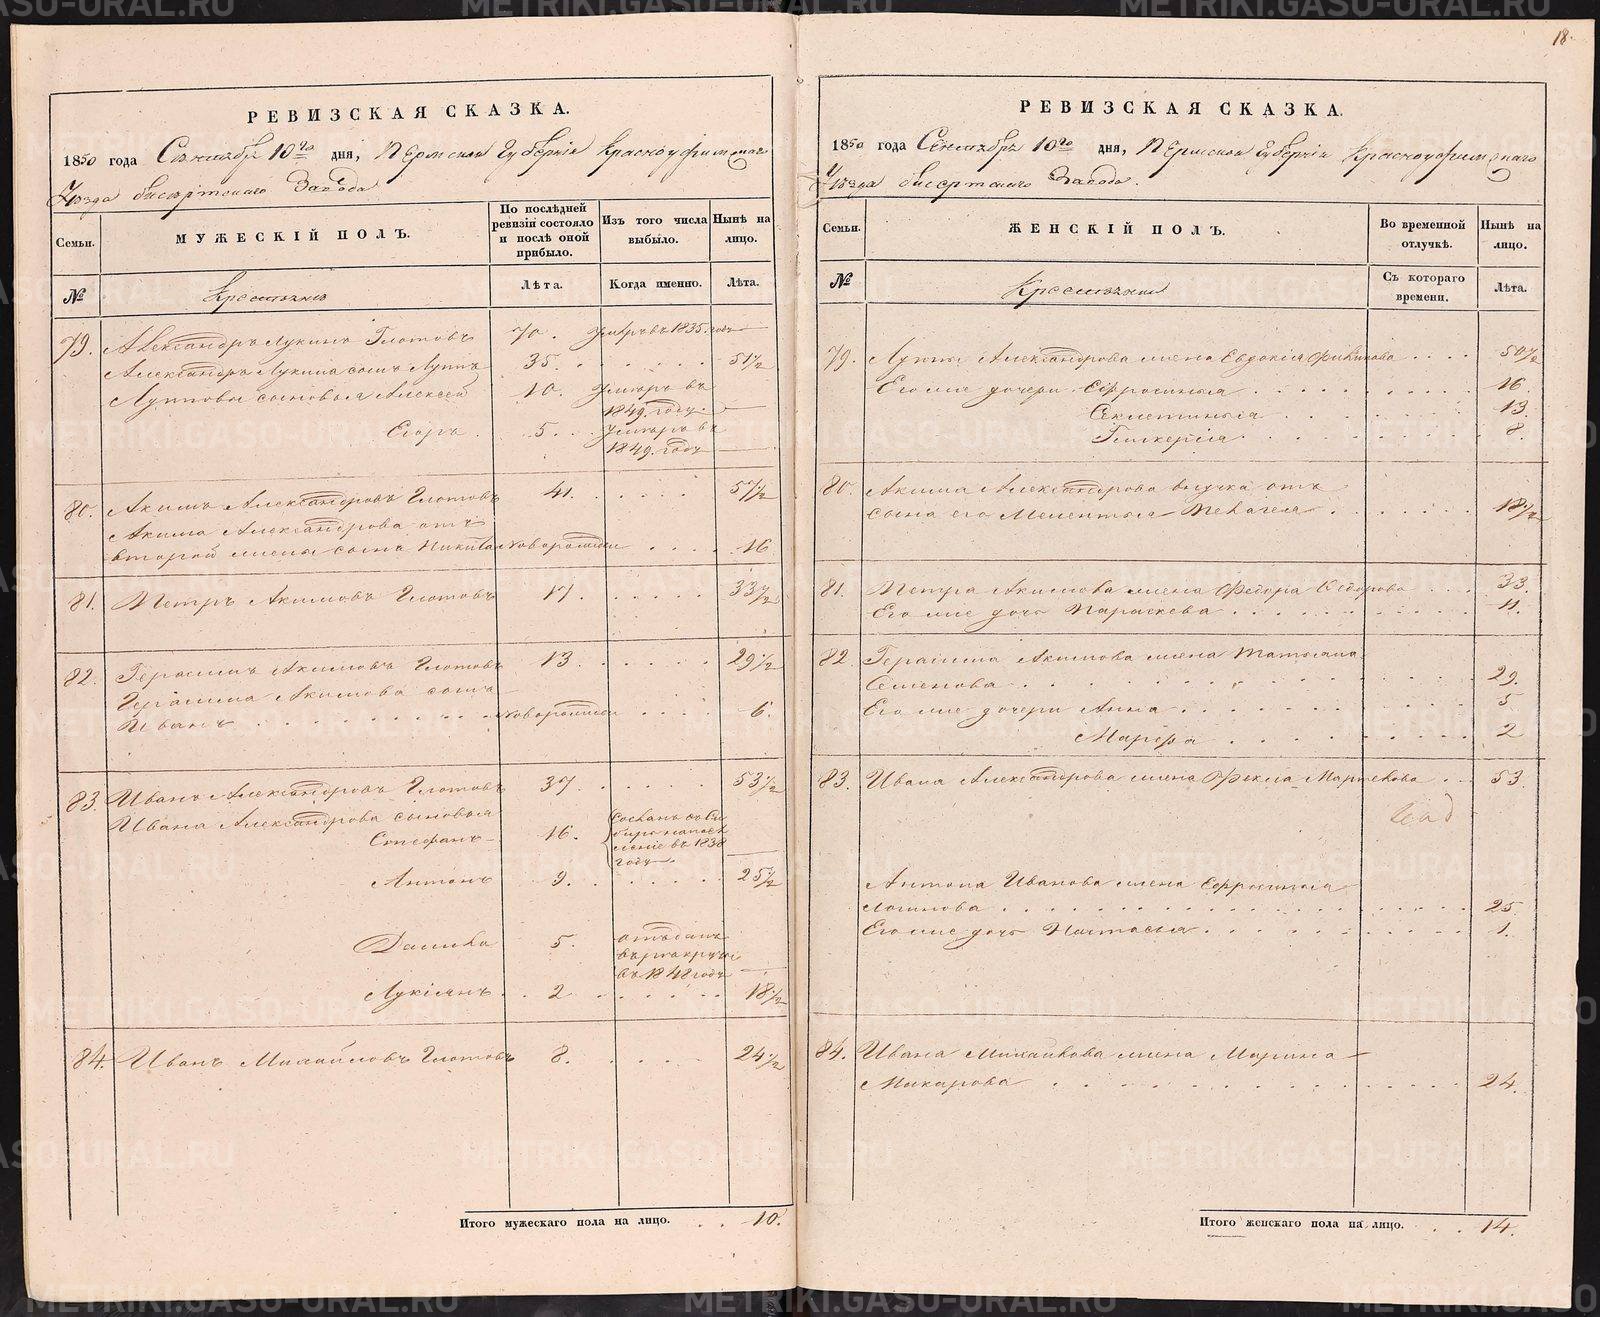 18.
РЕВИЗСКАЯ СКАЗКА.
1850 года Сентябр 10го дня, Пермской Губернiи Красноуфимскаго
Уезда бисертскаго Завода
Семьи.
МУЖЕСКІЙ ПОЛЪ.
По послѣдней ревизіи состояло и послѣ оной прибыло.
Изъ того числа выбыло.
Нынѣ на лицо.
№
Крестьяне
Лѣта.
Когда именно.
Лѣта.
79. Александръ Лукинъ Глотовъ 70. Умеръ въ 1835. году
Александра Лукина сынъ Луппъ 35. 51 1/2
Лупповы сыновья Алексей 10. Умеръ въ
1849. году.
Егоръ. 5. Умеръ въ
1849. году
80. Акимъ Александровъ Глотовъ 41. 57 1/2
Акима Александрова отъ
второй жены сынъ Никита новорожден 16
81. Петръ Акимовъ Глотовъ 17. 33 1/2
82. Герасимъ Акимовъ Глотовъ 13. 29 1/2
Герасима Акимова сынъ
Иванъ новорожден 6.
83. Иванъ Александровъ Глотовъ 37. 53 1/2
Ивана Александрова сыновья
Стефанъ 16. Сосланъ въ Си
бирь на посе
ленiе въ 1838
году.
Антонъ 9. 25 1/2
Данила 5. отъданъ
въ рекруты
въ 1848 году
Лукiянъ 2 18 1/2
84. Иванъ Михайловъ Глотовъ 8. 24 1/2
Итого мужескаго пола на лицо. 10.
РЕВИЗСКАЯ СКАЗКА.
1850 года Сентябръ 10го дня, Пермской Губернiи Красноуфимскаго
Уезда бисертскаго Завода.
Семьи.
ЖЕНСКІЙ ПОЛЪ.
Во временной отлучкѣ.
Нынѣ на лицо.
№
Крестьяне
Съ котораго времени.
Лѣта.
79. Луппы Александрова жена Евдокiя 50 1/2
Его же дочери Ефросинья 16
Секлетинья 13.
Гликерiя 8.
80. Акима Александрова внучка отъ
сына его Мелентья Пелагея 18 1/2
81. Петра Акимова жена Федора Федорова 33.
Его же дочь Параскева 11.
82. Герасима Акимова жена Татьяна
Семенова 29.
Его же дочери Анна 5
Марфа 2
83. Ивана Александрова жена Фекла 53
Антона Иванова жена Ефросинья
Логинова 25.
Его же дочь Настасья 1.
84. Ивана Михайлова жена Марина
Макарова 24.
Итого женскаго пола на лицо. 14.
METRIKI.GASO-URAL.RU